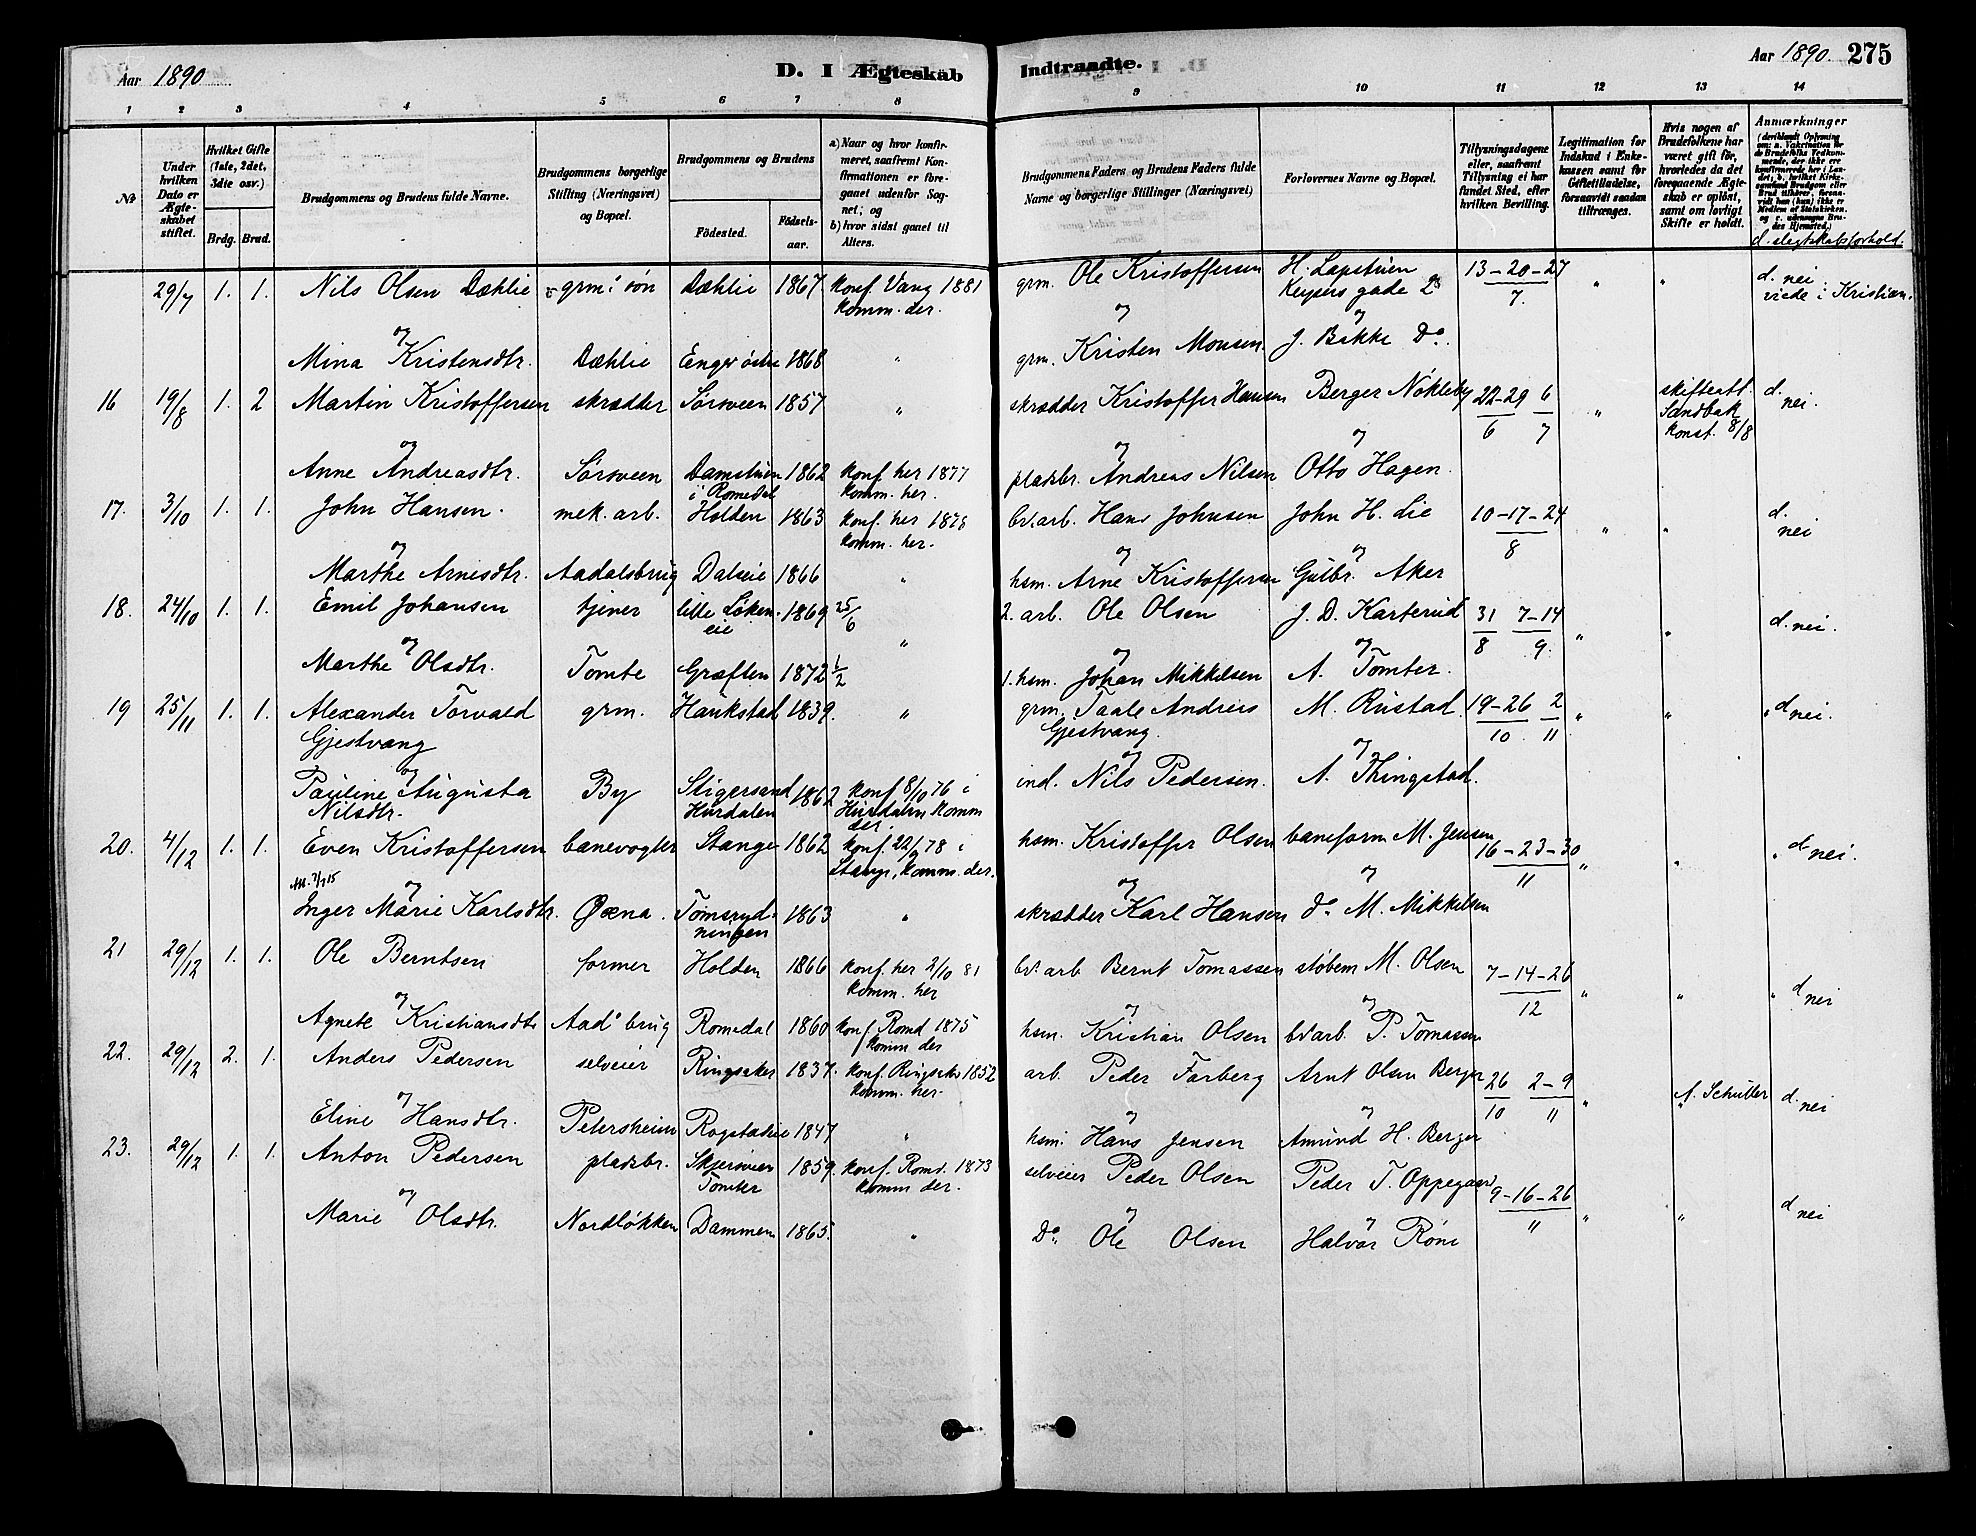 Aar 1890
D. I Ægteskab Indtraadte.
Aar 1890. 275
1 2 3 4 5 6 7 8 9 10 11 12 13 14
№
Under hvilken Dato er Ægteskabet stiftet.
Hvilket Gifte (1ste, 2det, 3die osv.)
Brdg. Brud.
Brudgommens og Brudens fulde Navne.
Brudgommens borgerlige Stilling (Næringsvei) og Bopæl.
Brudgommens og Brudens
Födested. Födselsaar.
a) Naar og hvor konfirmeret, saafremt Konfirmationen er foregaaet udenfor Sognet; og
b) hvor sidst gaaet til Alters.
Brudgommens Faders og Brudens Faders fulde Navne og borgerlige Stillinger (Næringsvei)
Forlovernes Navne og Bopæl.
Tillysningsdagene eller, saafremt Tillysning ei har fundet Sted, efter hvilken Bevilling.
Legitimation for Indskud i Enkekassen samt for Giftetilladelse, forsaavidt saadan tiltrænges.
Hvis nogen af Brudefolkene har været gift för, hvorledes da det foregaaende Ægteskab er oplöst, samt om lovligt Skifte er holdt.
Anmærkninger
d. slegtskabsforhold.
29/7 1. 1. Nils Olsen Dæhlie grm. sön Dæhlie 1867 konf. Vang 1881 komm. der. grm. Ole Kristoffersen H. Lapstuen Keysers gade 13-20-27/7. " " d. nei. viede i Kristian.
og
Mina Kristensdtr. Dæhlie Enger östre 1868 " grm. Kristen Monsen. J. Bakke Do.
16 19/8 1. 2 Martin Kristoffersen skrædder Sörsveen 1857 " skrædder Kristoffer Hansen Berger Nökleby 22-29/6 6/7 " skifteatt. Sandbak konst. 8/8 d. nei.
og
Anne Andreasdtr. Sörsveen Damstuen i Romedal 1862 konf. her 1877 komm. her. pladsbr. Andreas Nilsen Otto Hagen.
17. 3/10 1. 1. John Hansen. mek. arb. Holden 1863 konf. her 1878 komm. her. br. arb. Hans Johnsen John H. Lie 10-17-24/8 " " d. nei
og
Marthe Arnesdtr. Aadalsbrug Dalseie 1866 " hsm. Arne Kristoffersen Gulbr. Aker
18. 24/10 1. 1. Emil Johansen tjener lille Löken-eie 1869 25/6 " 2. arb. Ole Olsen J. D. Karterud 31/8 7-14/9. " " d. nei.
og
Marthe Olsdtr. Tomte Græften 1872 1/2 1. hsm. Johan Mikkelsen A. Tomter.
19 25/11 1. 1. Alexander Torvald Gjestvang grm. Haukstad 1839. " grm. Taale Andreas Gjestvang. M. Rustad. 19-26/10 2/11 " " " d nei.
og
Pauline Augusta Nilsdtr. By Stigersand Hurdalen 1862 konf. 8/10 76 i Hurdalen komm der. ind. Nils Pedersen. A. Thingstad.
20. 4/12 1. 1. Even Kristoffersen banevogter Stange 1862 konf. 22/9 78 i Stange, komm. der. hsm. Kristoffer Olsen baneform M. Jensen 16-23-30/11 " " " d nei.
og
Inger Marie Karlsdtr. Öxna. Tomsrydningen 1863 " skrædder Karl Hansen do. M. Mikkelsen
21 29/12 1. 1. Ole Berntsen former Holden 1866 konf. her 2/10 81 komm. her br. arb Bernt Tomassen stöbem M. Olsen 7-14-26/12 " " " d nei
og
Agnete Kristiansdtr Aads brug Romedal 1860 konf Romd 1875 komm der hsm. Kristian Olsen br. arb. P. Tomassen
22. 29/12 2. 1. Anders Pedersen selveier Ringsaker 1837. konf. Ringsaker 1852 komm. her. arb. Peder Farberg Arnt Olsen Berger 26/10 2-9/11 " A. Schulter d. nei
og
Eline Hansdtr. Petersheim 1847 " hsm. Hans Jensen Amund H. Berger
23. 29/12 1. 1. Anton Pedersen pladsbr. Skjersveen Tomter 1859. konf. Romd. 1873 komm der. selveier Peder Olsen Peder T. Oppegaard 9-16-26/11 " " d nei
og
Marie Olsdtr. Nordlökken Dammen 1865. " Do. Ole Olsen Halvor Röne